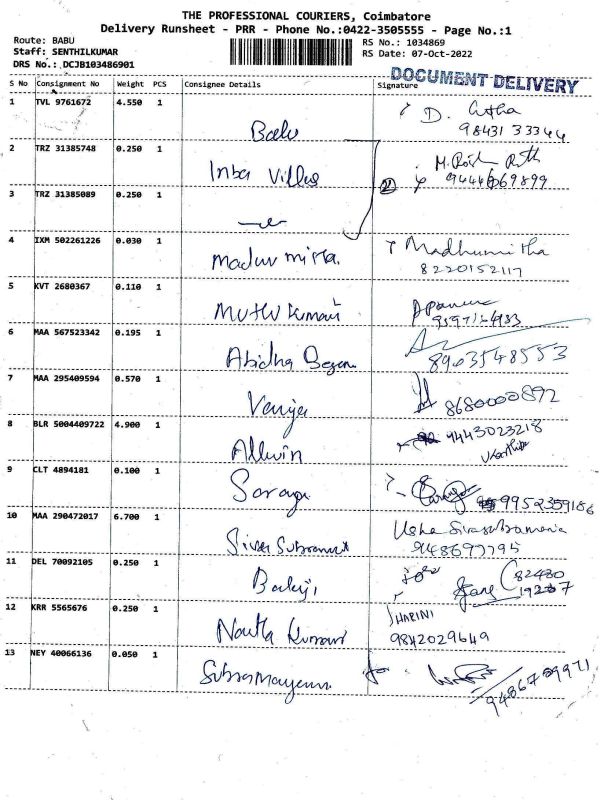 THE PROFESSIONAL COURIERS, Coimbatore
Delivery Runsheet - PRR - Phone No.:0422-3505555 - Page No.:1
Route: BABU
RS No.: 1034869
Staff: SENTHILKUMAR
RS Date: 07-Oct-2022
DRS No.: DCJB103486901
DOCUMENT DELIVERY
S No Consignment No Weight PCS Consignee Details Signature
1 TVL 9761672 4.550 1 Babu D.
98431 33344
2 TRZ 31385748 0.250 1 Inba Villas
3 TRZ 31385089 0.250 1
4 IXM 502261226 0.030 1 Madhumitha
8220152117
5 KVT 2680367 0.110 1 Muthu Kumari
6 MAA 567523342 0.195 1 Abidha Begam
8903548553
7 MAA 295409594 0.570 1 Vanija
8680000892
8 BLR 5004409722 4.900 1 Allwin
9443023218
9 CLT 4894181 0.100 1 Saraya
9952359186
10 MAA 290472017 6.700 1 Usha Sivasubramania
9486977795
11 DEL 70092105 0.250 1 Balaji
12 KRR 5565676 0.250 1 Kumari HARINI
9842029649
13 NEY 40066136 0.050 1
9486789971